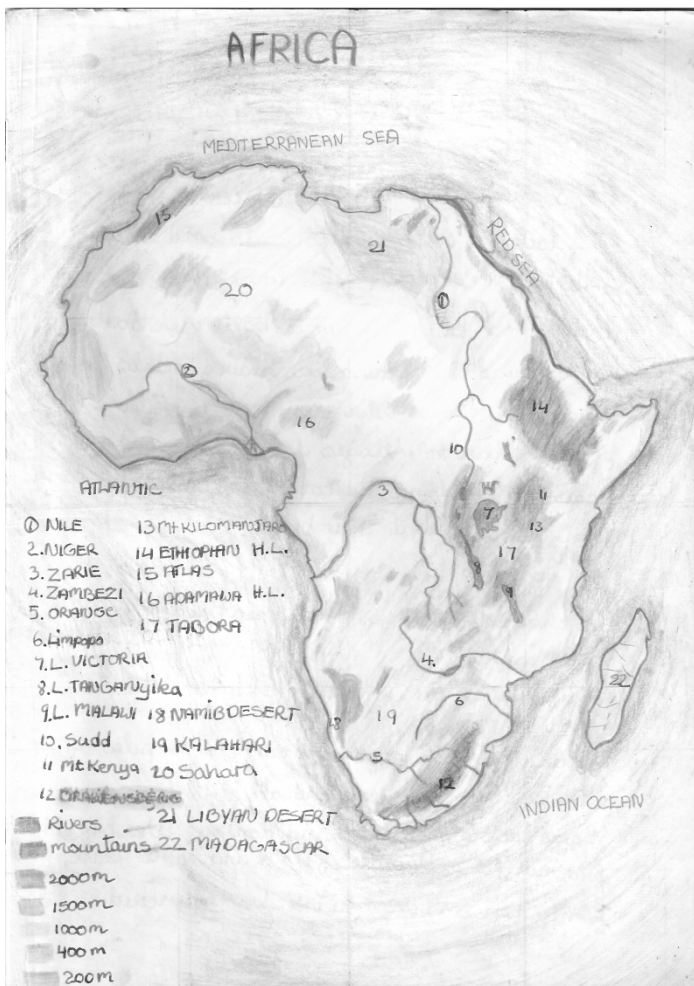 AFRICA
MEDITERRANEAN SEA
RED SEA
15
21
20
1
2
14
16
10
ATLANTIC
3
7
11
13
17
8
9
4.
22
6
18
19
5
12
INDIAN OCEAN
1 NILE
2. NIGER
3. ZARIE
4. ZAMBEZI
5. ORANGE
6. Limpopo
7. L. VICTORIA
8. L. TANGANyika
9. L. MALAWI
10. Sudd
11 Mt Kenya
12 DRAKENSBERG
13 Mt KILOMANJARO
14 ETHIOPIAN H.L.
15 ATLAS
16 ADAMAWA H.L.
17 TABORA
18 NAMIB DESERT
19 KALAHARI
20 Sahara
21 LIBYAN DESERT
22 MADAGASCAR
Rivers
mountains
2000m
1500m
1000m
400m
200m